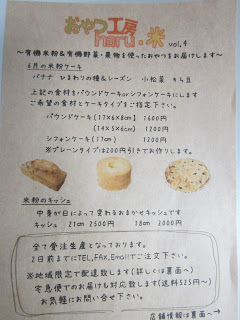 おやつ工房
haru・米 vol.4
～有機米粉＆有機野菜・果物を使ったおやつをお届けします～
6月の米粉ケーキ
バナナ ひまわりの種＆レーズン 小松菜 そら豆
上記の食材をパウンドケーキorシフォンケーキにします
ご希望の食材とケーキタイプをご指定下さい。
パウンドケーキ(17×6×8cm) 1600円
(14×5×6cm) 1200円
シフォンケーキ(17cm) 1200円
※プレーンタイプは200円引きでお作りします。
米粉のキッシュ
中身が日によって変わるおまかせキッシュです
キッシュ 21cm 2500円 18cm 2000円
全て受注生産となっております。
2日前までにTEL,FAX,Emailでご注文下さい。
※地域限定で配達致します(詳しくは裏面へ)
宅急便でのお届けも対応致します(送料525円～)
お気軽にお問い合せ下さい。
店舗情報は裏面へ→